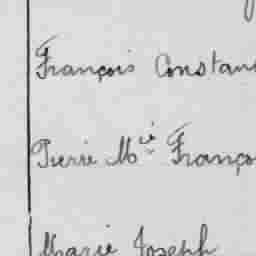 François Constan
Pierre M^ie Franço
Marie Joseph